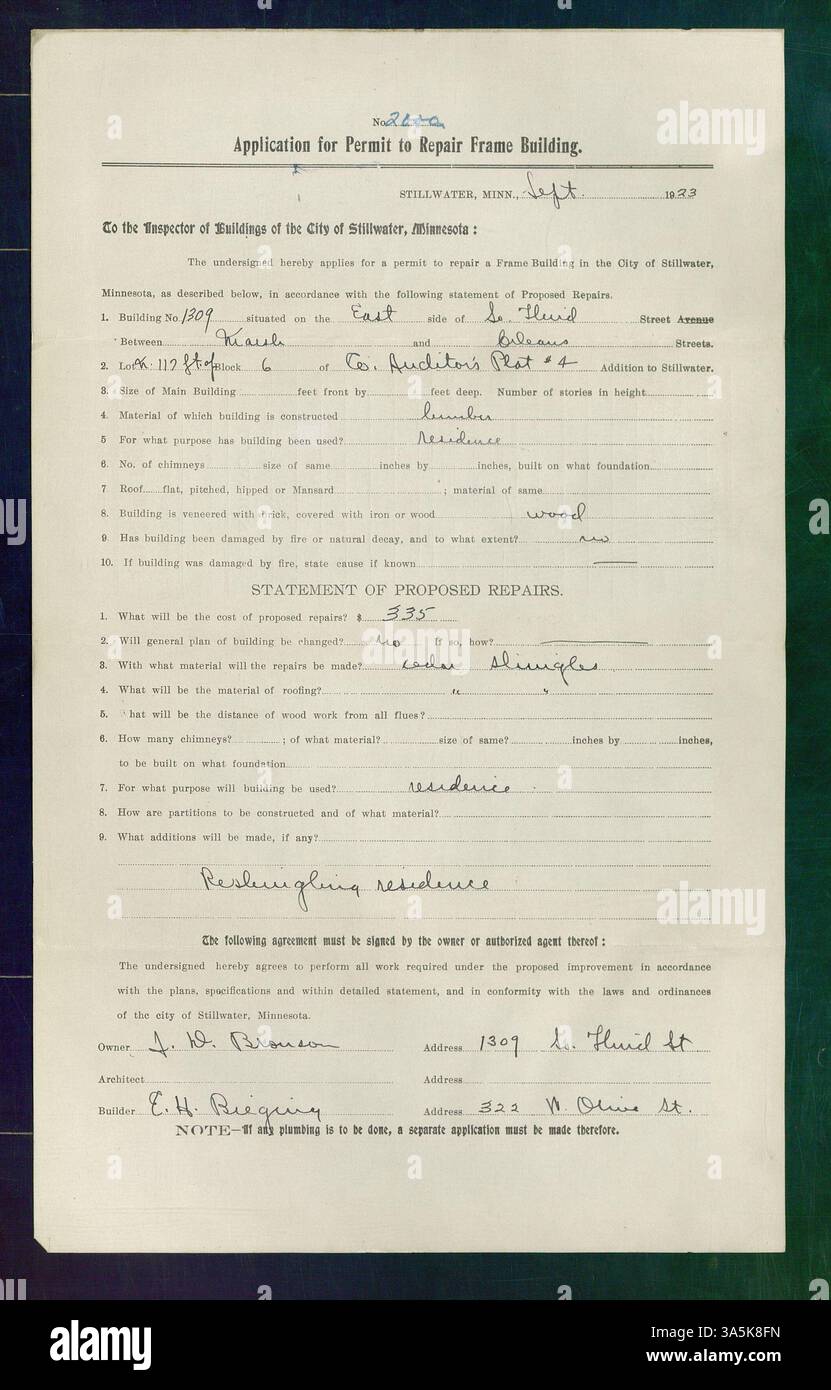 No.
Application for Permit to Repair Frame Building.
STILLWATER, MINN., Sept. 1923
To the Inspector of Buildings of the City of Stillwater, Minnesota :
The undersigned hereby applies for a permit to repair a Frame Building in the City of Stillwater,
Minnesota, as described below, in accordance with the following statement of Proposed Repairs.
1. Building No. 1309 situated on the East side of So. Third Street Avenue
Between Marsh and Orleans Streets.
2. Lot N. 117 ft of Block 6 of Co. Auditor's Plat #4 Addition to Stillwater.
3. Size of Main Building feet front by feet deep. Number of stories in height
4. Material of which building is constructed lumber
5 For what purpose has building been used? residence
6. No. of chimneys size of same inches by inches, built on what foundation
7 Roof flat, pitched, hipped or Mansard ; material of same
8. Building is veneered with brick, covered with iron or wood wood
9 Has building been damaged by fire or natural decay, and to what extent? no
10. If building was damaged by fire, state cause if known —
STATEMENT OF PROPOSED REPAIRS.
1. What will be the cost of proposed repairs? $ 335
2. Will general plan of building be changed? no If so, how? —
3. With what material will the repairs be made? cedar shingles
4. What will be the material of roofing? " "
5. hat will be the distance of wood work from all flues?
6. How many chimneys? ; of what material? size of same? inches by inches,
to be built on what foundation
7. For what purpose will building be used? residence
8. How are partitions to be constructed and of what material?
9. What additions will be made, if any?
Reshingling residence
The following agreement must be signed by the owner or authorized agent thereof :
The undersigned hereby agrees to perform all work required under the proposed improvement in accordance
with the plans, specifications and within detailed statement, and in conformity with the laws and ordinances
of the city of Stillwater, Minnesota.
Owner J. D. Bronson Address 1309 So. Third St
Architect Address
Builder E. H. Bieging Address 322 W. Olive St.
NOTE—If any plumbing is to be done, a separate application must be made therefore.
alamy
Image ID: 3A5K8FN
www.alamy.com